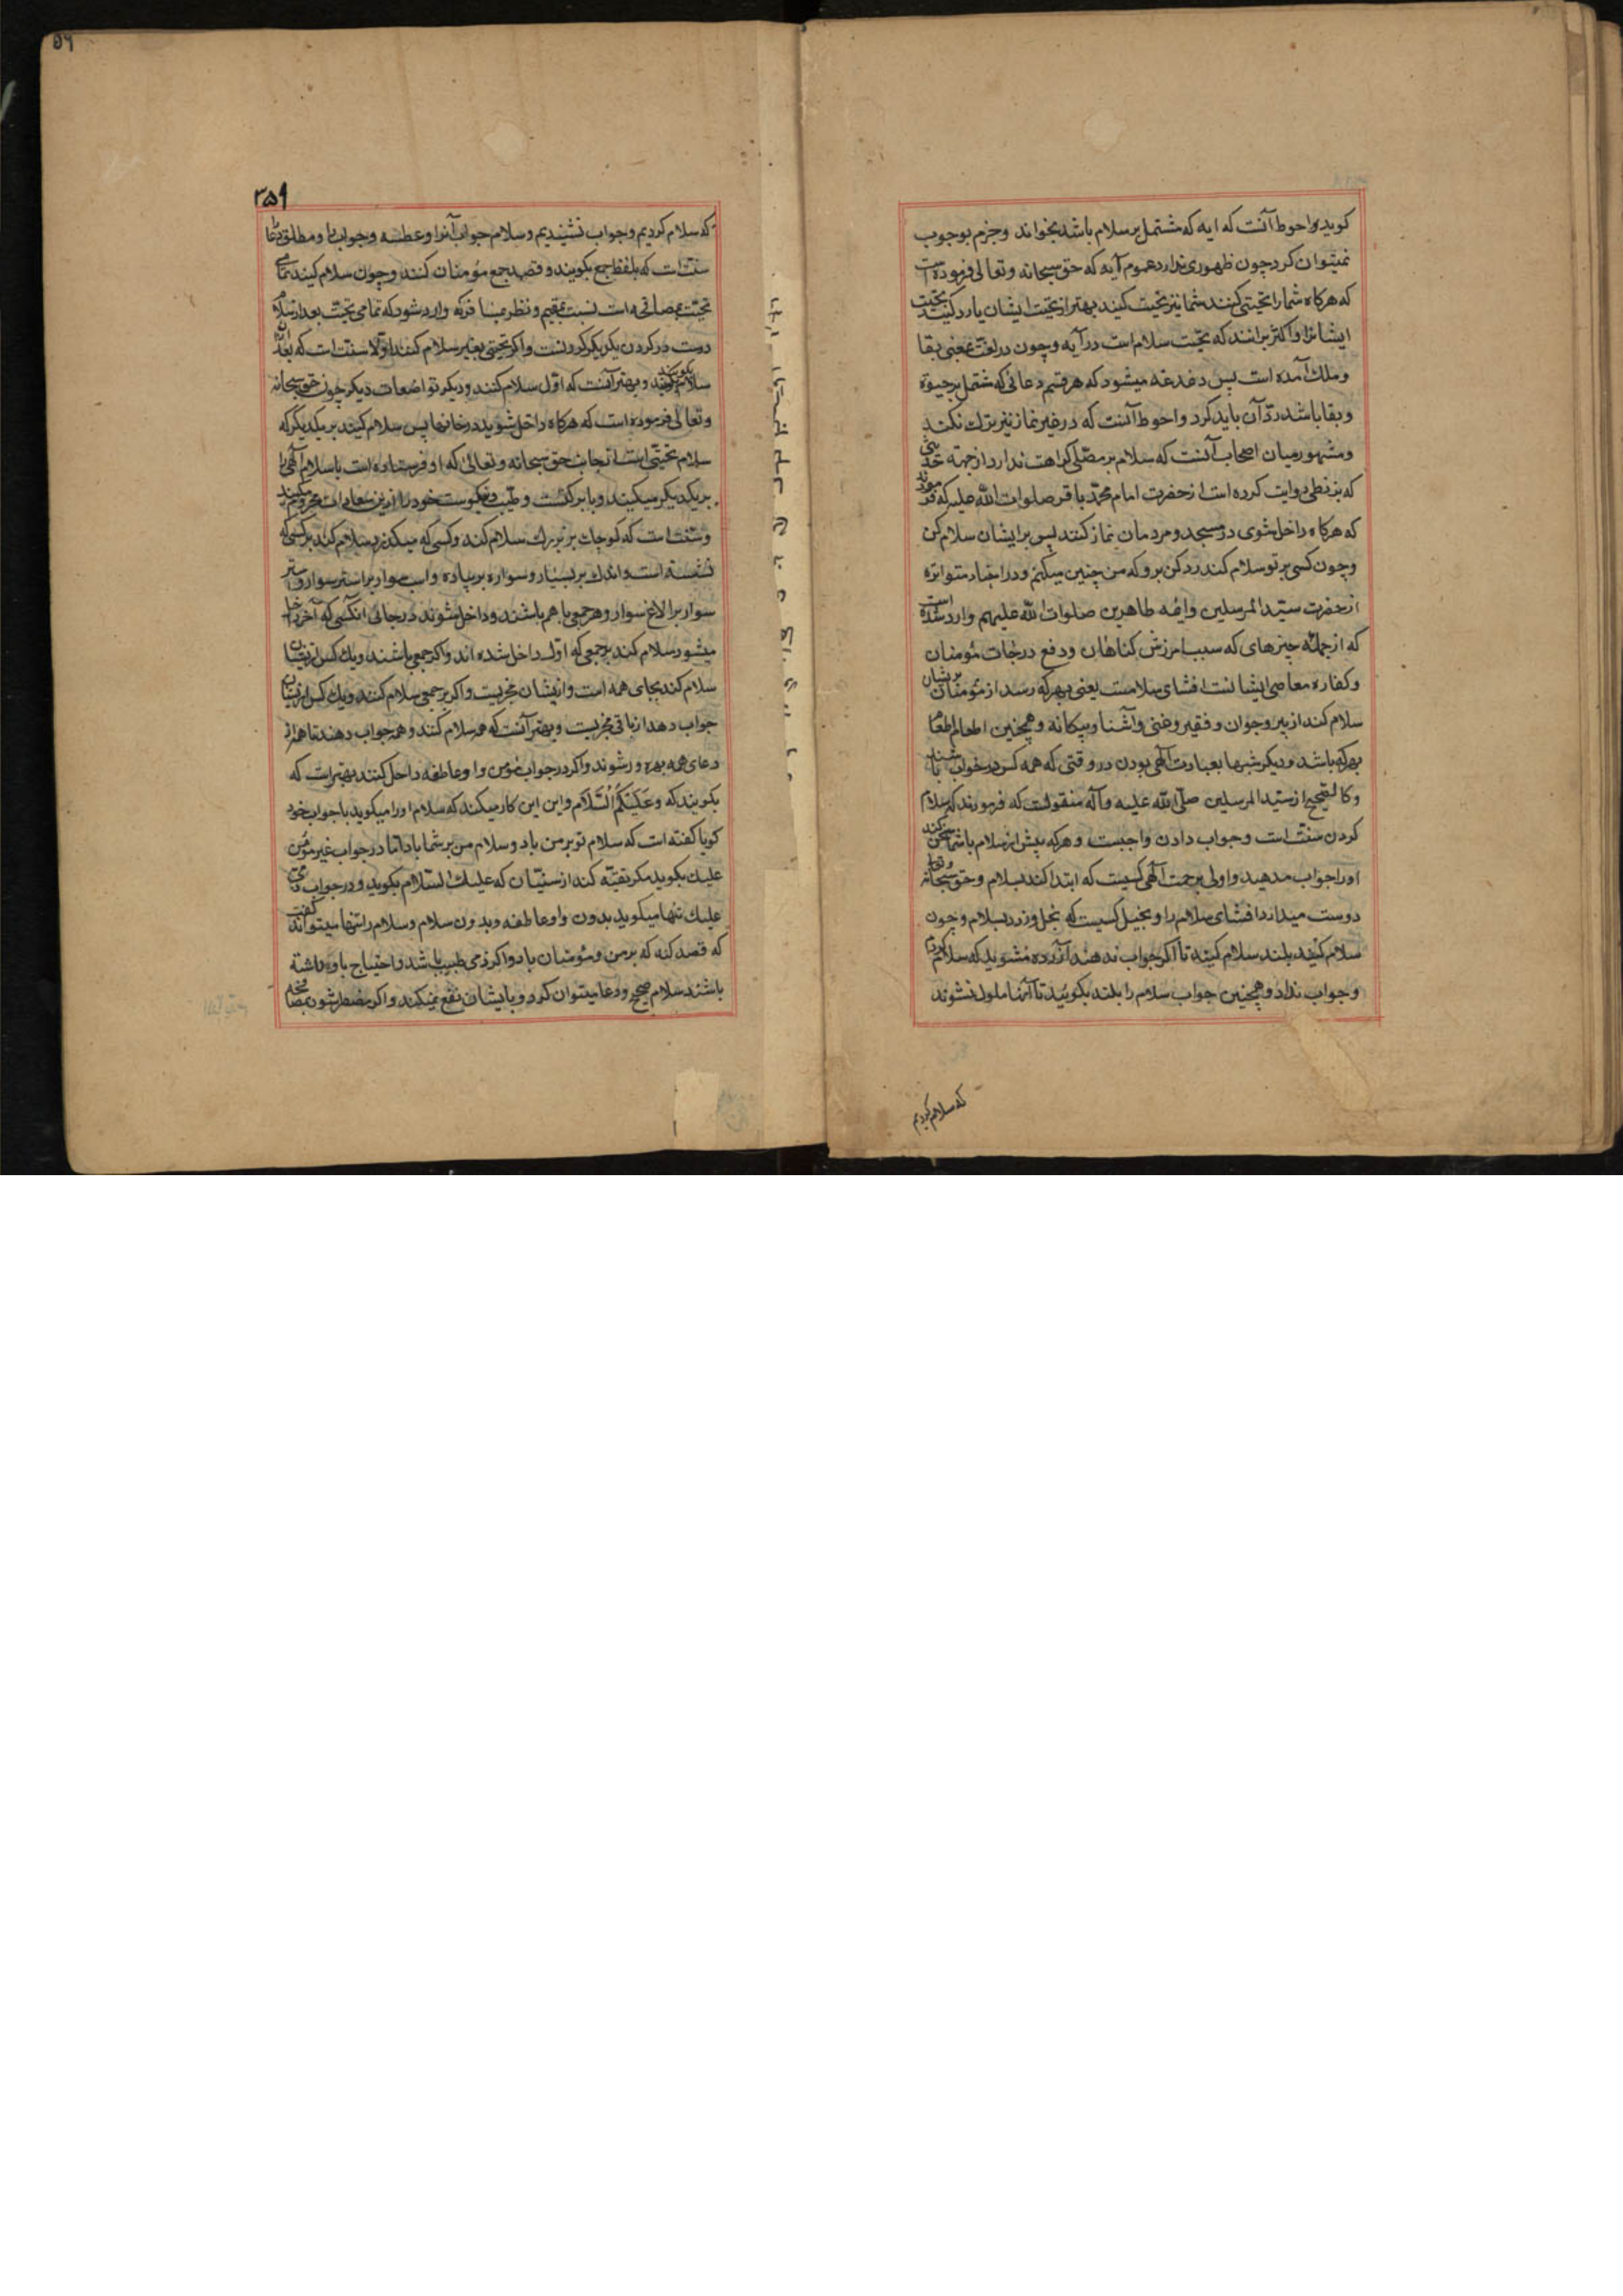 کویدو احوط آنست که ایه که مشتمل بر سلام باشد بخواند و جزم بوجوب
نمیتوان کرد چون ظهوری ندارد عموم آیه که حق سبحانه و تعالی فرموده است
که هرکاه شما را تحیتی کنند شما نیز تحیت کنید بهتر از تحیت ایشان یا رد کنید تحیت
ایشانرا و اکثر برانند که تحیت سلام است در آیه و چون در لغت بمعنی بقا
و ملک آمده است پس دغدغه میشود که هر قسم دعائی که مشتمل بر حیوة
و بقا باشد رد آن باید کرد و احوط آنست که در غیر نماز نیز ترک نکند
و مشهور میان اصحاب آنست که سلام بر مصلی کراهت ندارد از جهة حدیثی
که بزنطی روایت کرده است از حضرت امام محمد باقر صلوات الله علیه که فرمودند
که هرکاه داخل شوی در مسجد و مردمان نماز کنند پس بر ایشان سلام کن
و چون کسی بر تو سلام کند رد کن برو که من چنین میکنم و در اخبار متواتره
از حضرت سید المرسلین و ائمه طاهرین صلوات الله علیهم وارد شده است
که از جمله چیزهای که سبب امرزش کناهان و دفع درجات مؤمنان
و کفاره معاصی ایشانست افشای سلامست یعنی بهرکه رسد از مؤمنان بریشان
سلام کند از پیر و جوان و فقیر و غنی و آشنا و بیکانه و همچنین اطعام طعام
بهرکه باشد و دیکر شبها بعبادت آلهی بودن در وقتی که همه کس در خواب باشند
و کالصحیح از سید المرسلین صلی الله علیه و آله منقولست که فرمودند که سلام
کردن سنت است و جواب دادن واجبست و هرکه پیش از سلام با شما سخن کند
اورا جواب مدهید و اولی برحمت آلهی کسیست که ابتدا کند بسلام و حق سبحانه و تعا
دوست میدارد افشای سلام را و بخیل کسیست که بخل ورزد بسلام و چون
سلام کنید بلند سلام کنید تا اکر جواب ندهند آزرده مشوید که سلام کردم
و جواب نداد و همچنین جواب سلام را بلند بکوئید تا آنها ملول نشوند
که سلام کردیم
۳۵۶
که سلام کردیم و جواب نشنیدیم و سلام جواب آنرا و عطسه و جواب را و مطلق دعا
سنت است که بلفظ جمع بکویند و قصد جمع مؤمنان کنند و چون سلام کنید تمامی
تحیت مصافحه است نسبت بمقیم و نظر بمسافر که وارد شود که تمامی تحیت بعد از سلام
دست در کردن یکدیکر کردنست و اکر تحیتی بغیر سلام کنند اولا سنت است که بعد از آن
سلام کنند و بهتر آنست که اول سلام کنند و دیکر تواضعات دیکر چون حق سبحانه
و تعالی فرموده است که هرکاه داخل شوید در خانها پس سلام کنید بر یکدیکر که
سلام تحیتی است از جانب حق سبحانه و تعالی که او فرستاده است یا سلام آلهی را
بر یکدیکر میکنید و با برکت و طیب و نیکوست خود را ازین سعادات محروم مکنید
و سنت است که کوچک بر بزرک سلام کند و کسی که میکذرد سلام کند بر کسی که
نشسته است و اندک بر بسیار و سواره بر پیاده و اسب سوار بر استر سوار و استر
سوار بر الاغ سوار و هر جمعی با هم باشند و داخل شوند در جائی انکسی که آخر داخل
میشود سلام کند بر جمعی که اول داخل شده اند و اکر جمعی باشند و یک کس از ایشان
سلام کند بجای همه است و از ایشان مجزیست و اکر بر جمعی سلام کنند و یک کس از ایشان
جواب دهد از باقی مجزیست و بهتر آنست که همه سلام کنند و همه جواب دهند تا همه از
دعای همه بهره ور شوند و اکر در جواب مؤمن واو عاطفه داخل کنند بهتر است که
بکویند که وَعَلَیْکُمُ السَّلَام و این این کار میکند که سلام او را میکوید با جواب خود
کویا کفته است که سلام تو بر من باد و سلام من بر شما باد اما در جواب غیر مؤمن
علیک بکوید مکر تقیه کند از سنیان که علیک السلام بکوید و در جواب ذمی
علیک تنها میکوید بدون واو عاطفه و بدون سلام و سلام را تنها میتواند کفت
که قصد کند که بر من و مؤمنان باد و اکر ذمی طبیب باشد و احتیاج باو داشته
باشند سلام صحیح و دعا میتوان کرد و بایشان نفع نمیکند و اکر مضطر شود بمصافحه